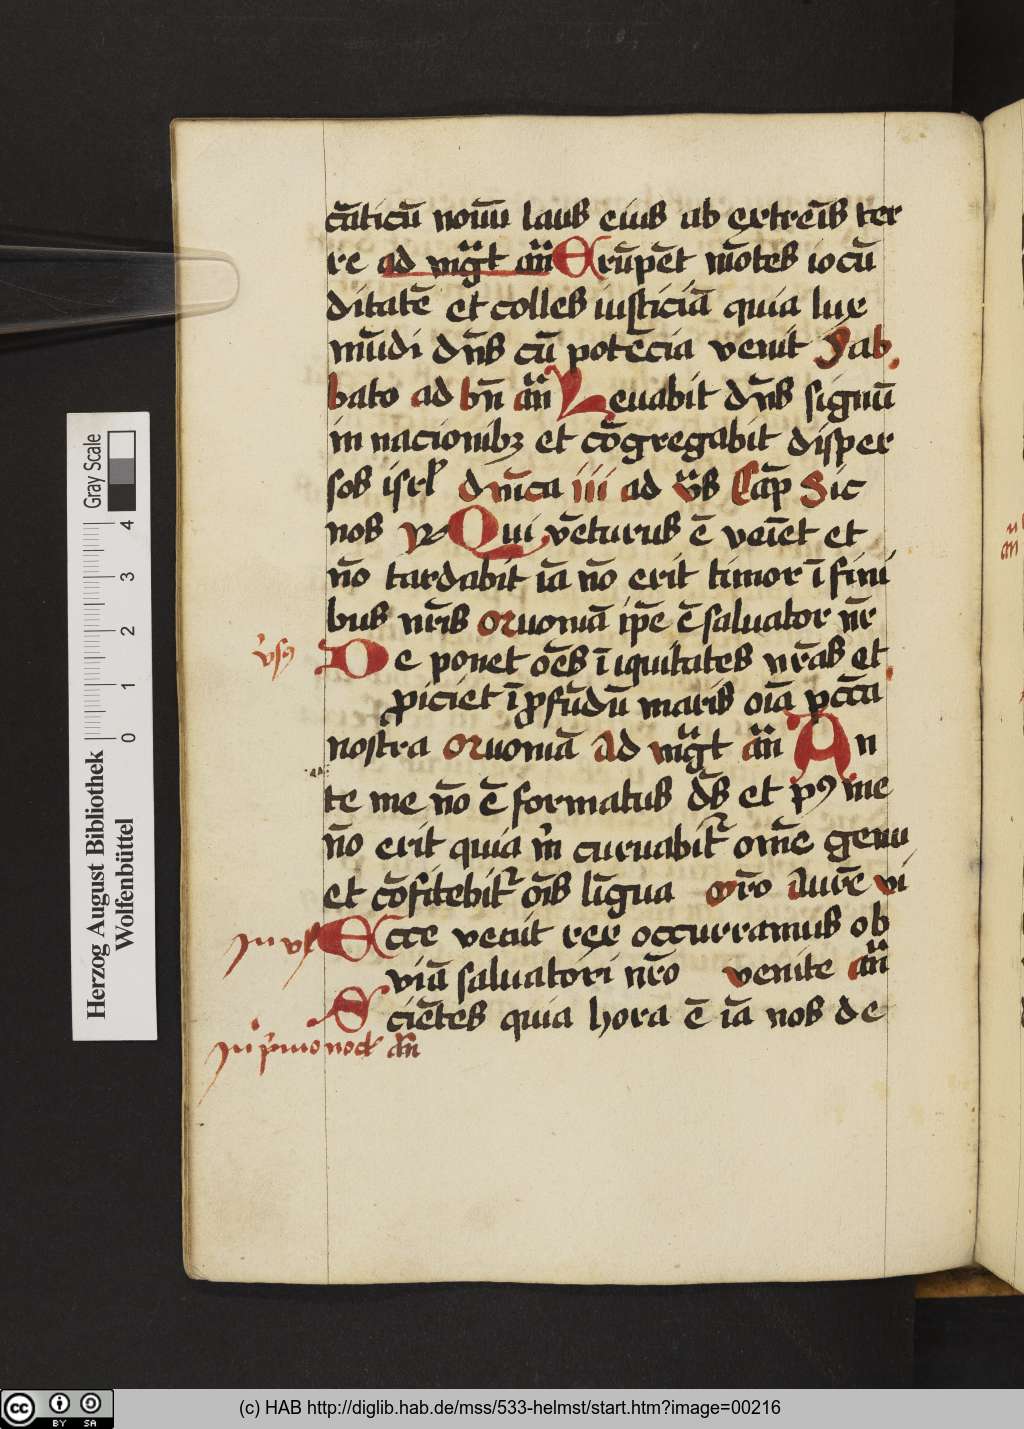 cāticū nouū laus eius ab extreīs ter
re ad mgᷓt an̄ Erūpēt mōtes iocū
ditatē et colles iusticiā quia lux
mūdi dn̄s cū potēcia venit Sab
bato ad bn̄ an̄ Leuabit dn̄s signū
in nacionibꝫ et cōgregabit disper
sos isrl̄ dnīca iii ad v̄s Cap̄ Sic
nos ꝶ Qui vēturus ē veīet et
nō tardabit iā nō erit timor ī fini
bus nr̄is Qruoniā ip̄e ē saluator nr̄
vsꝰ
De ponet oēs ī iquitates nr̄as et
ꝓiciet ī ꝓfūdū maris oīa pcc̄a
nostra Qruoniā Ad mgᷓt an̄ An
te me nō ē formatus ds̄ et pꝰ me
nō erit quia m̄ curuabit᷑ om̄e genu
et cōfitebit᷑ oīs līgua Or̄o Aurē vi
In vi
Ecce venit rex occurramus ob
viā saluatori nr̄o venite an̄
Sciētes quia hora ē iā nos de
In p̄mo noct̄ an̄
Herzog August Bibliothek
Wolfenbüttel
0 1 2 3 4
Gray Scale
BY SA
(c) HAB http://diglib.hab.de/mss/533-helmst/start.htm?image=00216